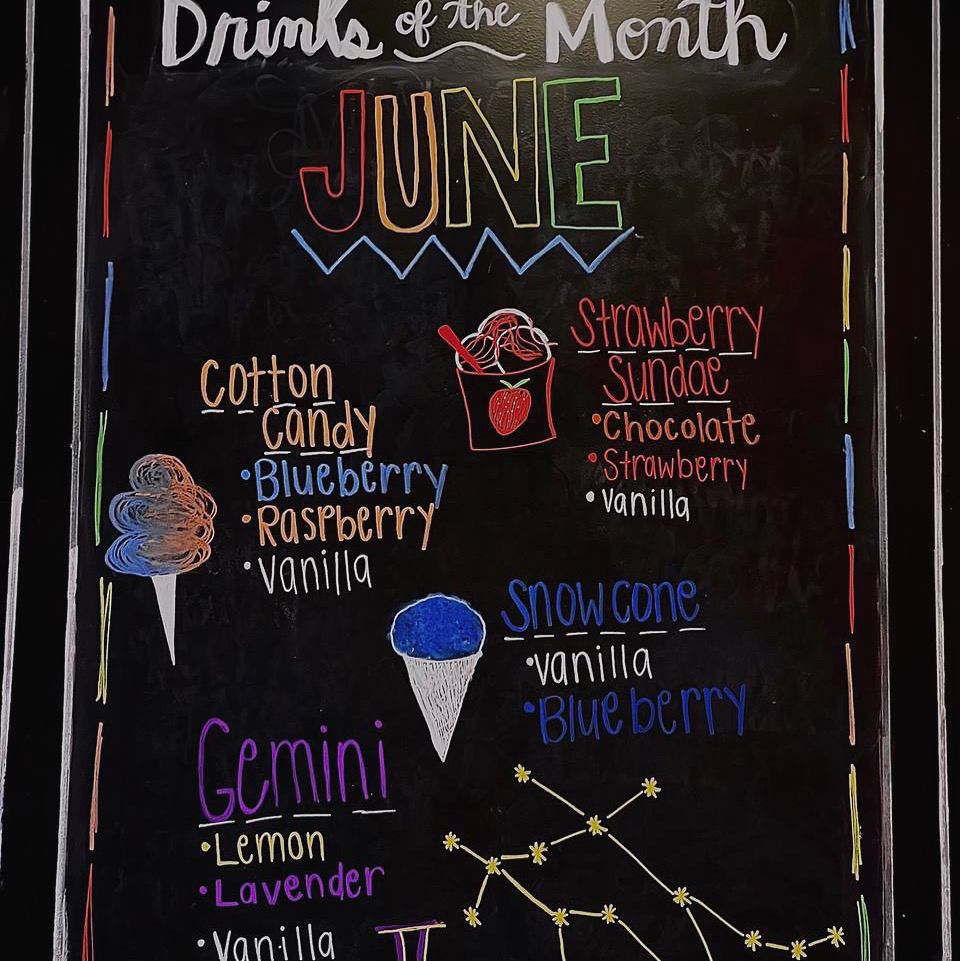 Drinks of the Month
JUNE
Strawberry
Sundae
•Chocolate
•Strawberry
•Vanilla
Cotton
Candy
•Blueberry
•Raspberry
•Vanilla
Snowcone
•Vanilla
•Blueberry
Gemini
•Lemon
•Lavender
•Vanilla